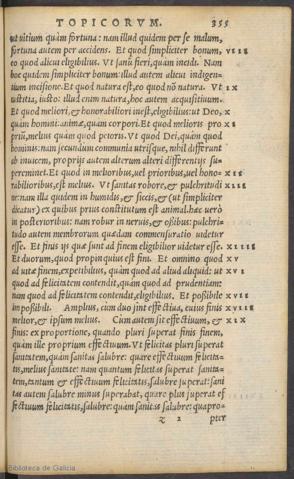 TOPICORVM. 355
ut uitium quàm fortuna: nam illud quidem per se malum,
fortuna autem per accidens. Et quod simpliciter bonum, VIII
eo quod alicui eligibilius. Vt sanū fieri, quàm incidi. Nam
hoc quidem simpliciter bonum: illud autem alicui indigen-
tium incisione. Et quod natura est, eo quod nō natura. Vt IX
iustitia, iusto: illud enim natura, hoc autem acquisitiuum.
Et quod meliori, & honorabiliori inest, eligibilius: ut Deo, X
quàm homini: animæ, quàm corpori. Et quod melioris pro XI
priū, melius quàm quod peioris. Vt quod Dei, quàm quod
hominis: nam secundum communia utrisque, nihil differunt
ab inuicem, proprijs autem alterum alteri differentijs su-
pereminet. Et quod in melioribus, uel prioribus, uel hono- XII
rabilioribus, est melius. Vt sanitas robore, & pulchritudi XIII
ne: nam illa quidem in humidis, & siccis, & (ut simpliciter
dicatur) ex quibus primis constitutum est animal: hæc uerò
in posterioribus: nam robur in neruis, & oßibus: pulchri-
tudo autem membrorum quædam commensuratio uidetur
esse. Et finis ijs quæ sunt ad finem eligibilior uidetur esse. XIIII
Et duorum, quod propinquius est fini. Et omnino quod XV
ad uitæ finem, expetibilius, quàm quod ad aliud aliquid: ut XVI
quod ad felicitatem contendit, quàm quod ad prudentiam:
nam quod ad felicitatem contendit, eligibilius. Et poßibile XVII
impoßibili. Amplius, cùm duo sint effectiua, cuius finis XVIII
melior, & ipsum melius. Cùm autem sit effectiuum, & XIX
finis: ex proportione, quando pluri superat finis finem,
quàm ille proprium effectiuum. Vt felicitas pluri superat
sanitatem, quàm sanitas salubre: quare effectiuum felicita-
tis, melius sanitate: nam quantum felicitas superat sanita-
tem, tantum & effectiuum felicitatis, salubre superat: sani
tas autem salubre minus superabat, quare plus superat ef
fectiuum felicitatis, salubre: quàm sanitas salubre: quapro-
z 2 pter
Biblioteca de Galicia